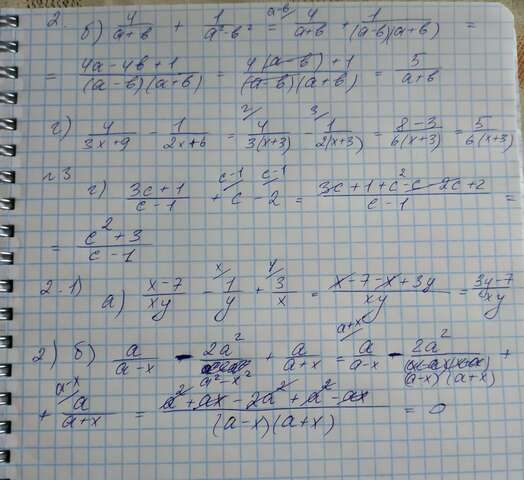 2. б) 4/(a+b) + 1/(a²-b²) = a-b/ 4/(a+b) + 1/((a-b)(a+b)) =
= (4a-4b+1)/((a-b)(a+b)) = (4(a-b)+1)/((a-b)(a+b)) = 5/(a+b)
г) 4/(3x+9) - 1/(2x+6) = 2/ 4/(3(x+3)) - 3/ 1/(2(x+3)) = (8-3)/(6(x+3)) = 5/(6(x+3))
№3
г) (3c+1)/(c-1) + c-1/ c - c-1/ 2 = (3c+1+c²-c-2c+2)/(c-1) =
= (c²+3)/(c-1)
2.1) a) (x-7)/(xy) - x/ 1/y + y/ 3/x = (x-7-x+3y)/(xy) = (3y-7)/(xy)
2) б) a/(a-x) - 2a²/(a²-x²) + a/(a+x) = a+x/ a/(a-x) - 2a²/((a-x)(a+x)) +
+ a-x/ a/(a+x) = (a²+ax-2a²+a²-ax)/((a-x)(a+x)) = 0